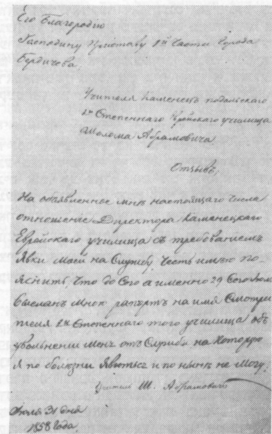 Его Благородию
Господину Приставу 2й Части Города
Бердичева.
Учителя Каменец подольского
2го Степеннаго Еврейского училища
Шолома Абрамовича
Отзывъ,
На объявленное мне настоящаго Числа
отношение Директора Каменецкого
Еврейского училища съ требованиемъ
Явки Моей на Службу Честь имею по
яснить, Что до Сего а именно 29 Сего Июля
выслан Мною рапортъ на имя Смотри
теля 2хъ Степеннаго того училища объ
увольнении Меня отъ Службы на Которую
я по болезни явиться и по ныне не Могу.
Учитель Ш. Абрамовичъ
Июль 31 дня
1858 года.